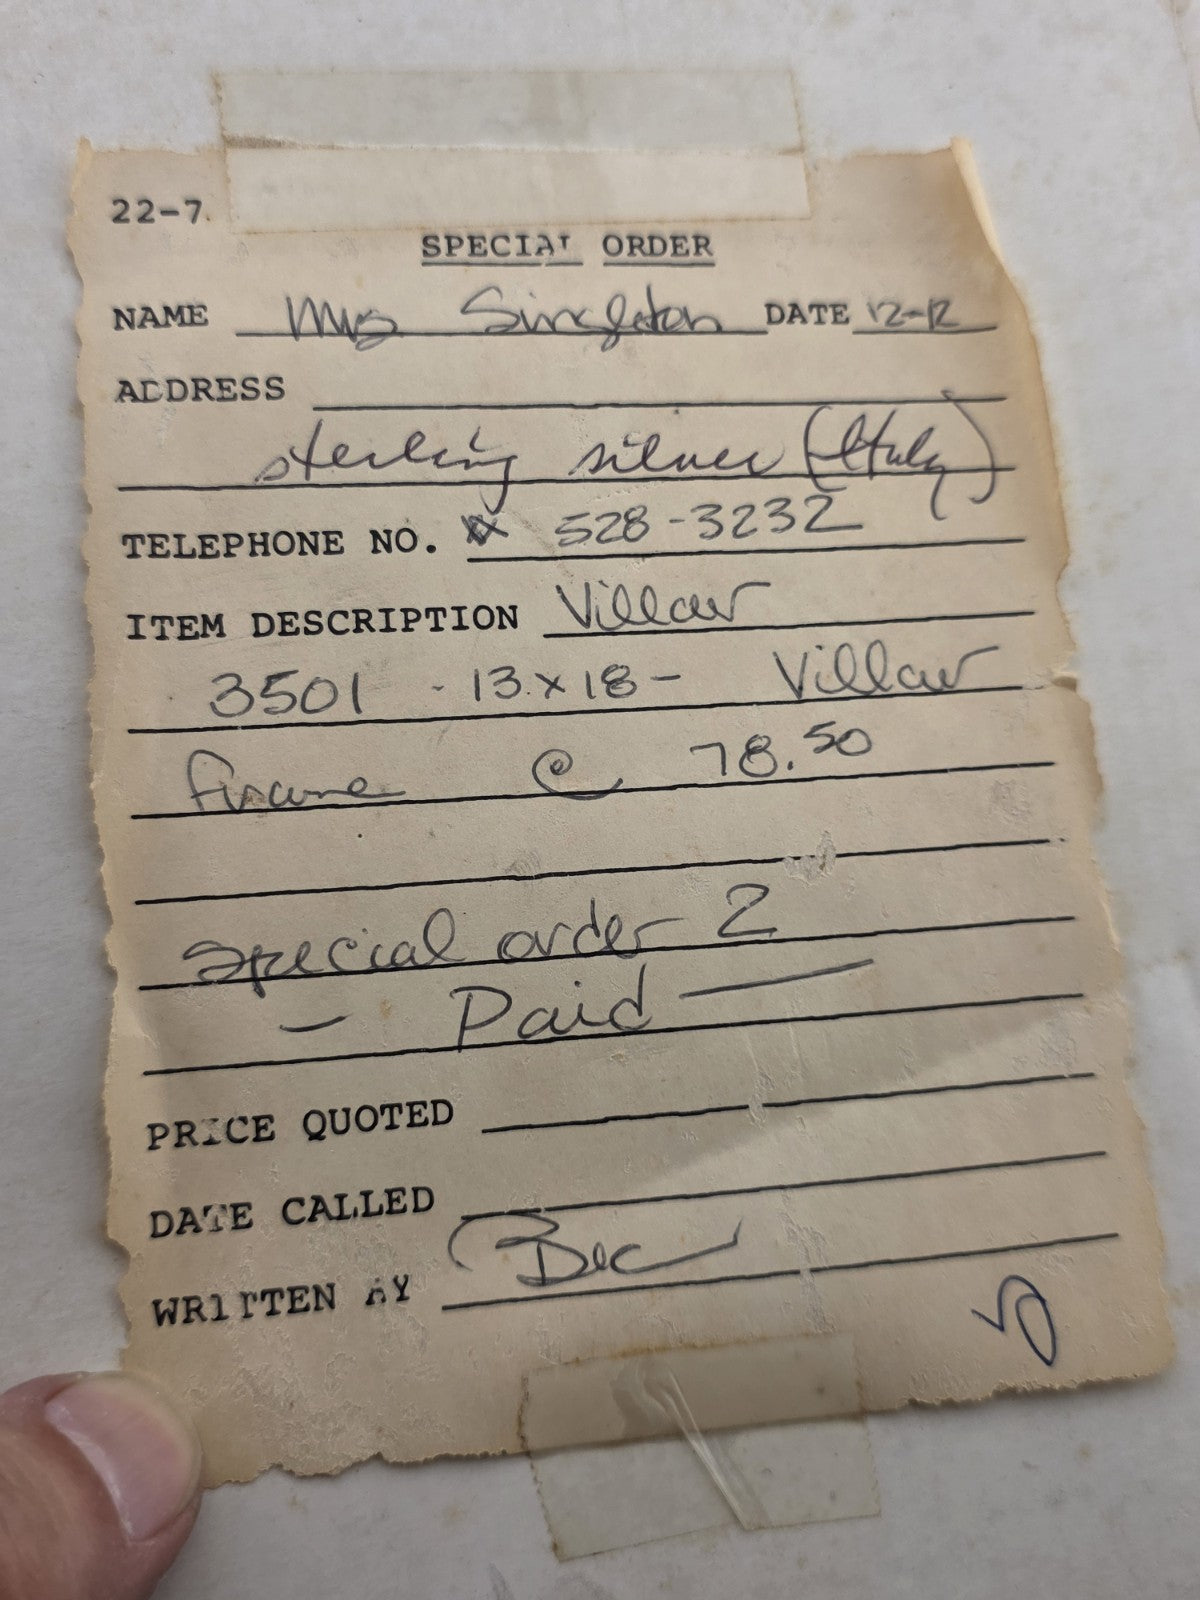 22-7
SPECIAL ORDER
NAME Mrs Singleton DATE 12-12
ADDRESS
sterling silver (Italy)
TELEPHONE NO. 528-3232
ITEM DESCRIPTION Villaw
3501 - 13x18- Villaw
frame @ 78.50
special order 2
- Paid -
PRICE QUOTED
DATE CALLED
WRITTEN BY